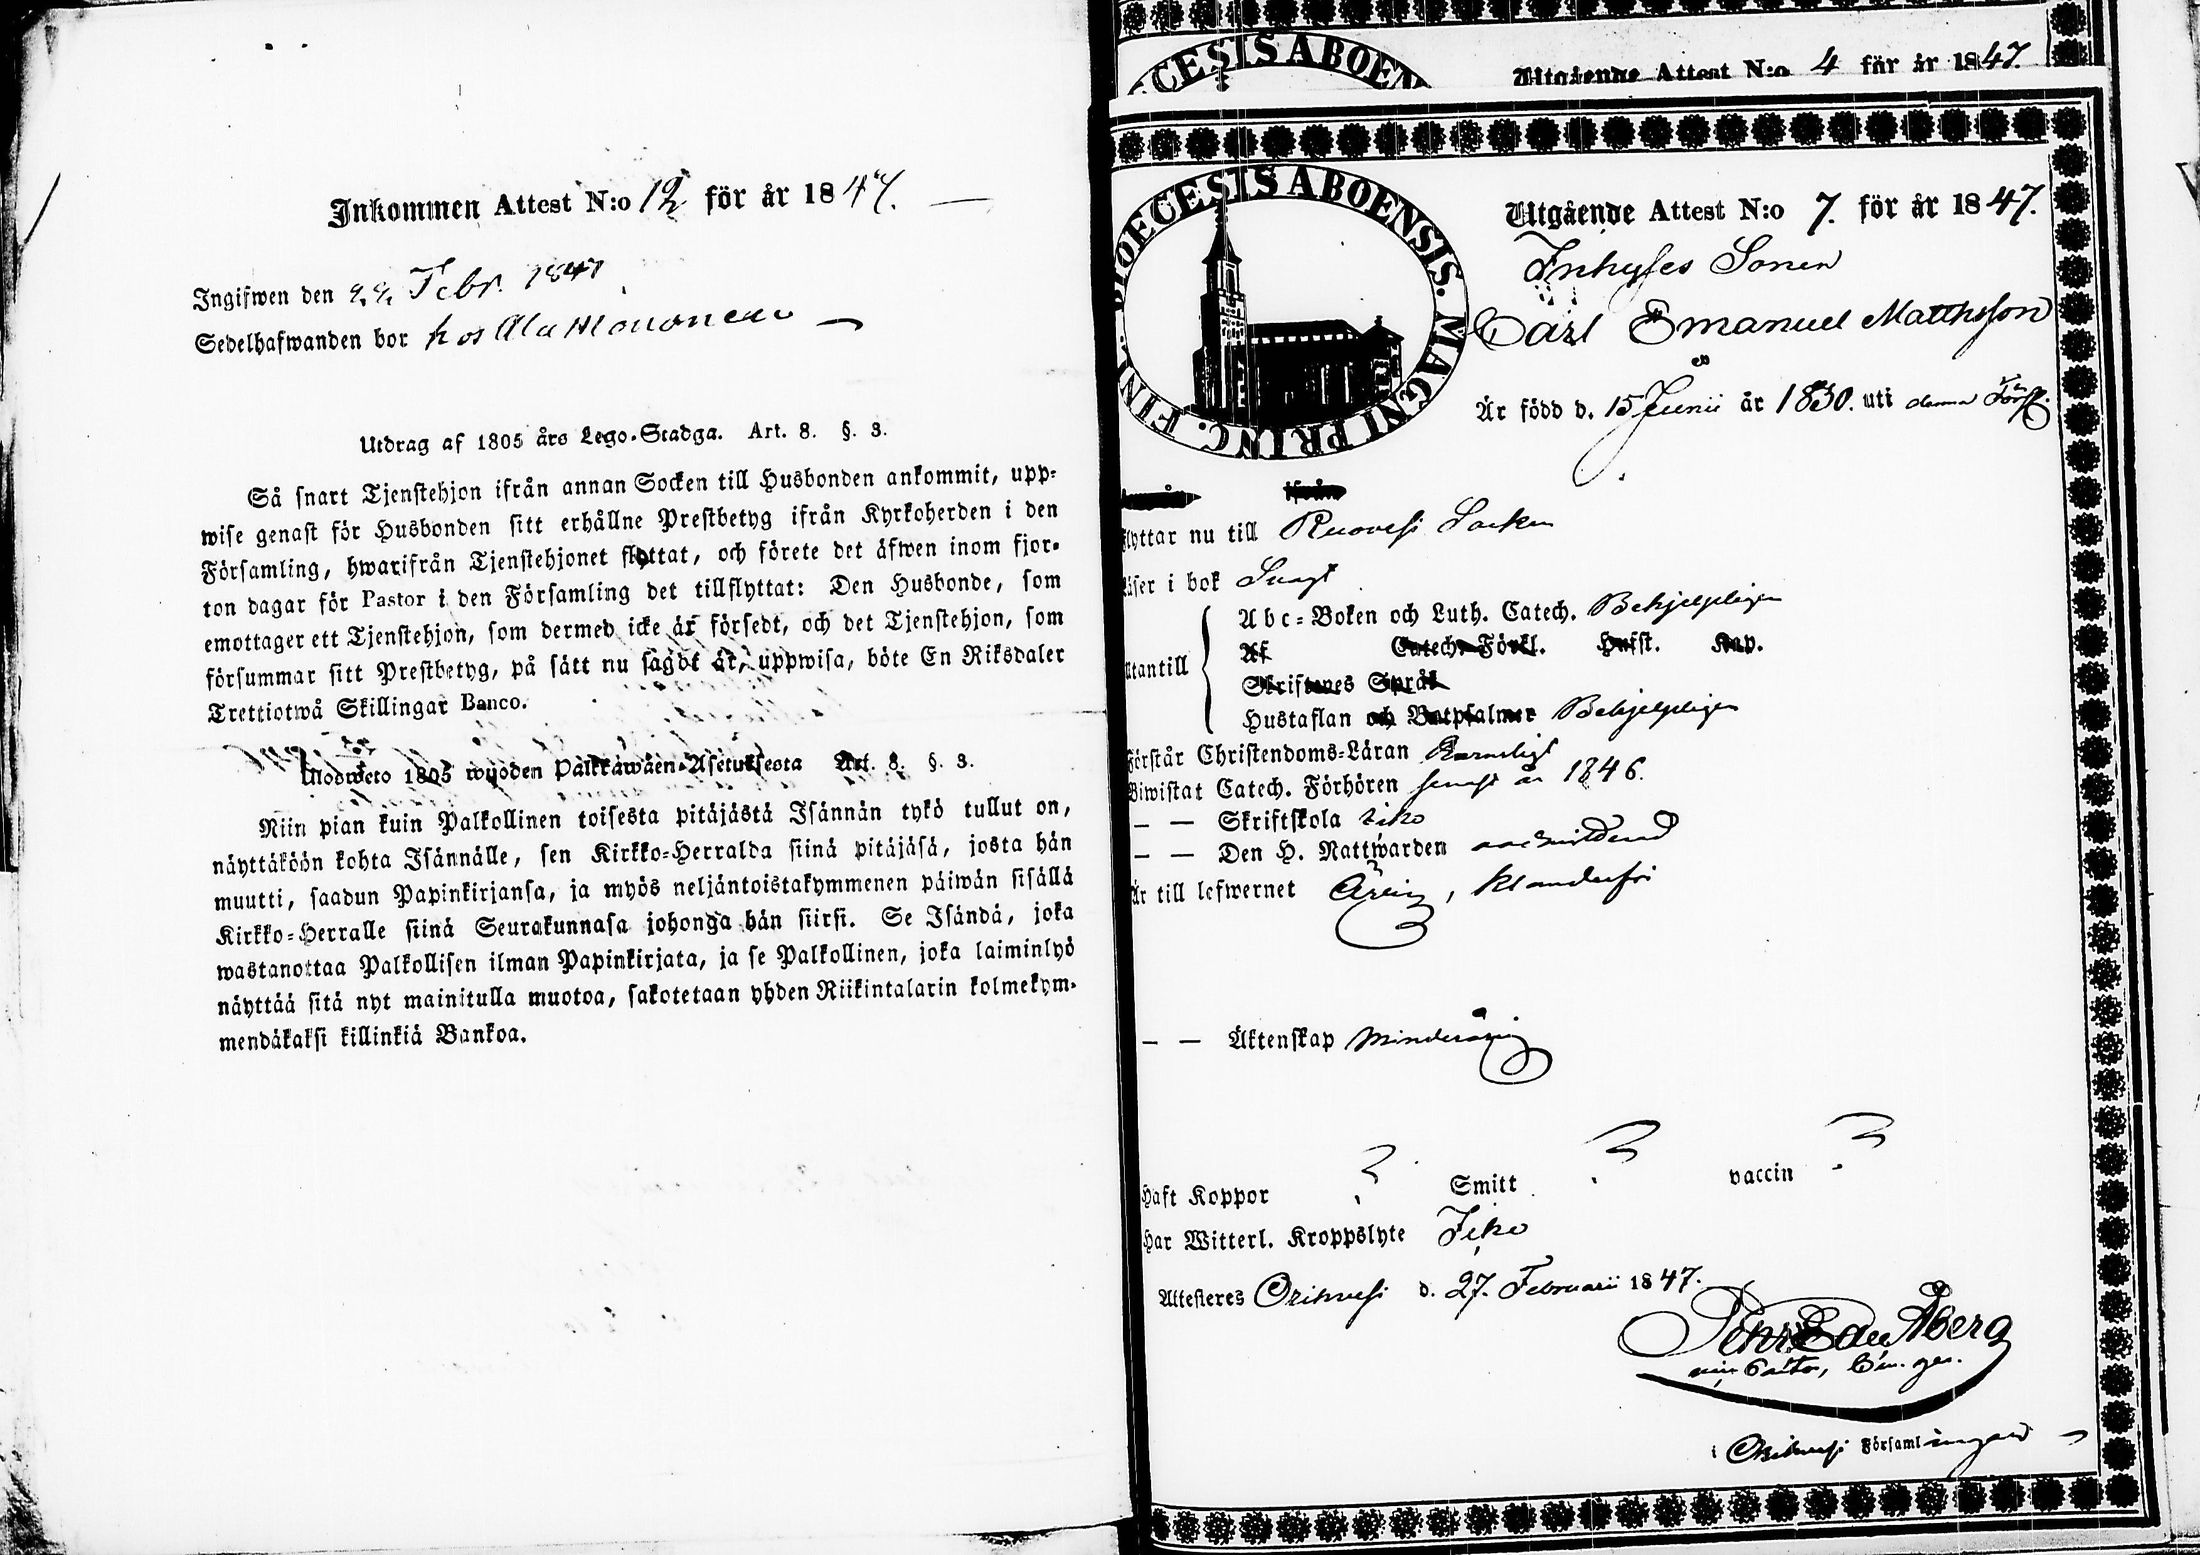 Inkommen Attest N:o 12 för år 1847.
Ingifwen den Febr. 1847
Sedelhafwanden bor hos Ala
Utdrag af 1805 års Lego-Stadga. Art. 8. §. 3.
Så snart Tjenstehjon ifrån annan Socken till Husbonden ankommit, upp-
wise genast för Husbonden sitt erhållne Prestbetyg ifrån Kyrkoherden i den
Församling, hwarifrån Tjenstehjonet flyttat, och förete det äfwen inom fjor-
ton dagar för Pastor i den Församling det tillflyttat: Den Husbonde, som
emottager ett Tjenstehjon, som dermed icke är försedt, och det Tjenstehjon, som
försummar sitt Prestbetyg, på sätt nu sagdt är, uppwisa, böte En Riksdaler
Trettiotwå Skillingar Banco.
Ulosweto 1805 wuoden Palkkawäen-Asetuksesta Art. 8. §. 3.
Niin pian kuin Palkollinen toisesta pitäjästä Isännän tykö tullut on,
näyttäköön kohta Isännälle, sen Kirkko-Herralda siinä pitäjäsä, josta hän
muutti, saadun Papinkirjansa, ja myös neljäntoistakymmenen päiwän sisällä
Kirkko-Herralle siinä Seurakunnasa johonga hän siirsi. Se Isändä, joka
wastanottaa Palkollisen ilman Papinkirjata, ja se Palkollinen, joka laiminlyö
näyttää sitä nyt mainitulla muotoa, sakotetaan yhden Riikintalarin kolmekym-
mendäkaksi killinkiä Bankoa.
CESIS ABOEN
Utgående Attest N:o 4 för år 1847.
DIOECESIS ABOENSIS. MAGNI PRINC. FINL.
Utgående Attest N:o 7. för år 1847.
Inhyses Sonen
Carl Emanuel Matthsson
Är född d. 15 Junii år 1830. uti denna Förs.
ifrån
flyttar nu till Ruovesi Socken
Läser i bok Svagt
Utantill
Abc-Boken och Luth. Catech. Behjelpligen
Af Catech. Förkl. Hufst. Kap.
Skriftenes Språk
Hustaflan och Botpsalmer Behjelpligen
Förstår Christendoms-Läran
Biwistat Catech. Förhören senast år 1846.
— — Skriftskola icke
— — Den H. Nattwarden
Är till lefwernet Ärlig, klanderfri
— — Äktenskap Minderårig
Haft Koppor ? Smitt ? vaccin ?
Har Witterl. Kroppslyte Icke
Attesteres Orihvesi d. 27. Februarii 1847.
Pehr Edu Åberg
i Orihvesi Församlingar